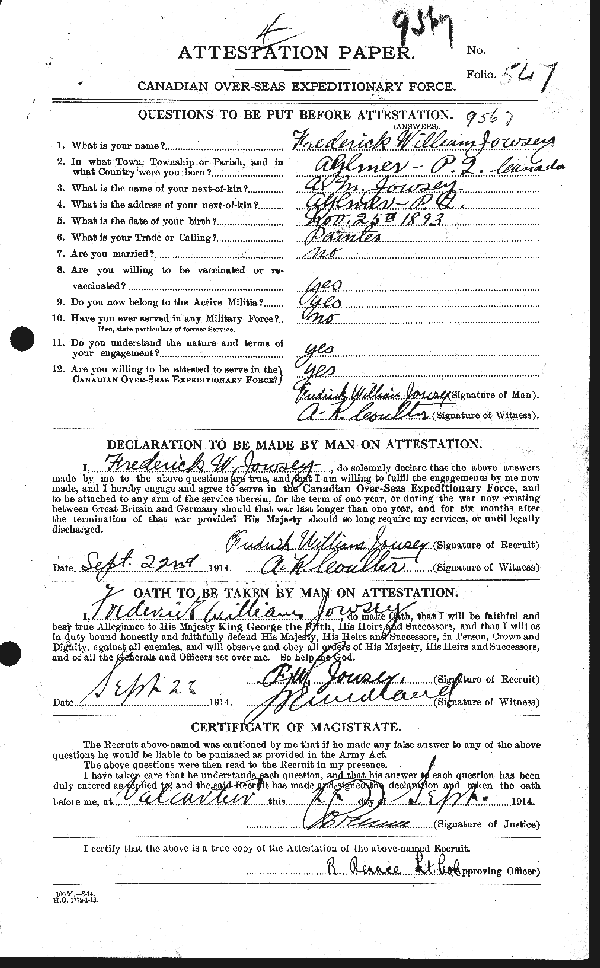 4
9567
ATTESTATION PAPER.
No.
Folio. 547
CANADIAN OVER-SEAS EXPEDITIONARY FORCE.
QUESTIONS TO BE PUT BEFORE ATTESTATION. 9567
(ANSWERS).
1. What is your name? Frederick William Jowsey
2. In what Town, Township or Parish, and in
what Country were you born? Aylmer - P.Q. Canada
3. What is the name of your next-of-kin? Jowsey
4. What is the address of your next-of-kin? Aylmer - P.Q.
5. What is the date of your birth? Nov. 25th 1893
6. What is your Trade or Calling? Painter
7. Are you married? no
8. Are you willing to be vaccinated or re-
vaccinated? yes
9. Do you now belong to the Active Militia? yes
10. Have you ever served in any Military Force? no
If so, state particulars of former Service.
11. Do you understand the nature and terms of
your engagement? yes
12. Are you willing to be attested to serve in the
CANADIAN OVER-SEAS EXPEDITIONARY FORCE? yes
Fredrick William Jowsey (Signature of Man).
A. K. Coulter (Signature of Witness).
DECLARATION TO BE MADE BY MAN ON ATTESTATION.
I, Frederick W. Jowsey, do solemnly declare that the above answers
made by me to the above questions are true, and that I am willing to fulfil the engagements by me now
made, and I hereby engage and agree to serve in the Canadian Over-Seas Expeditionary Force, and
to be attached to any arm of the service therein, for the term of one year, or during the war now existing
between Great Britain and Germany should that war last longer than one year, and for six months after
the termination of that war provided His Majesty should so long require my services, or until legally
discharged.
Fredrick William Jowsey (Signature of Recruit)
Date Sept. 22nd 1914. A. K. Coulter (Signature of Witness)
OATH TO BE TAKEN BY MAN ON ATTESTATION.
I, Frederick William Jowsey, do make Oath, that I will be faithful and
bear true Allegiance to His Majesty King George the Fifth, His Heirs and Successors, and that I will as
in duty bound honestly and faithfully defend His Majesty, His Heirs and Successors, in Person, Crown and
Dignity, against all enemies, and will observe and obey all orders of His Majesty, His Heirs and Successors,
and of all the Generals and Officers set over me. So help me God.
F.W. Jowsey (Signature of Recruit)
Date Sept. 22 1914. (Signature of Witness)
CERTIFICATE OF MAGISTRATE.
The Recruit above-named was cautioned by me that if he made any false answer to any of the above
questions he would be liable to be punished as provided in the Army Act.
The above questions were then read to the Recruit in my presence.
I have taken care that he understands each question, and that his answer to each question has been
duly entered as replied to, and the said Recruit has made and signed the declaration and taken the oath
before me, at Valcartier this 22 day of Sept. 1914.
(Signature of Justice)
I certify that the above is a true copy of the Attestation of the above-named Recruit.
Lt. Col. (Approving Officer)